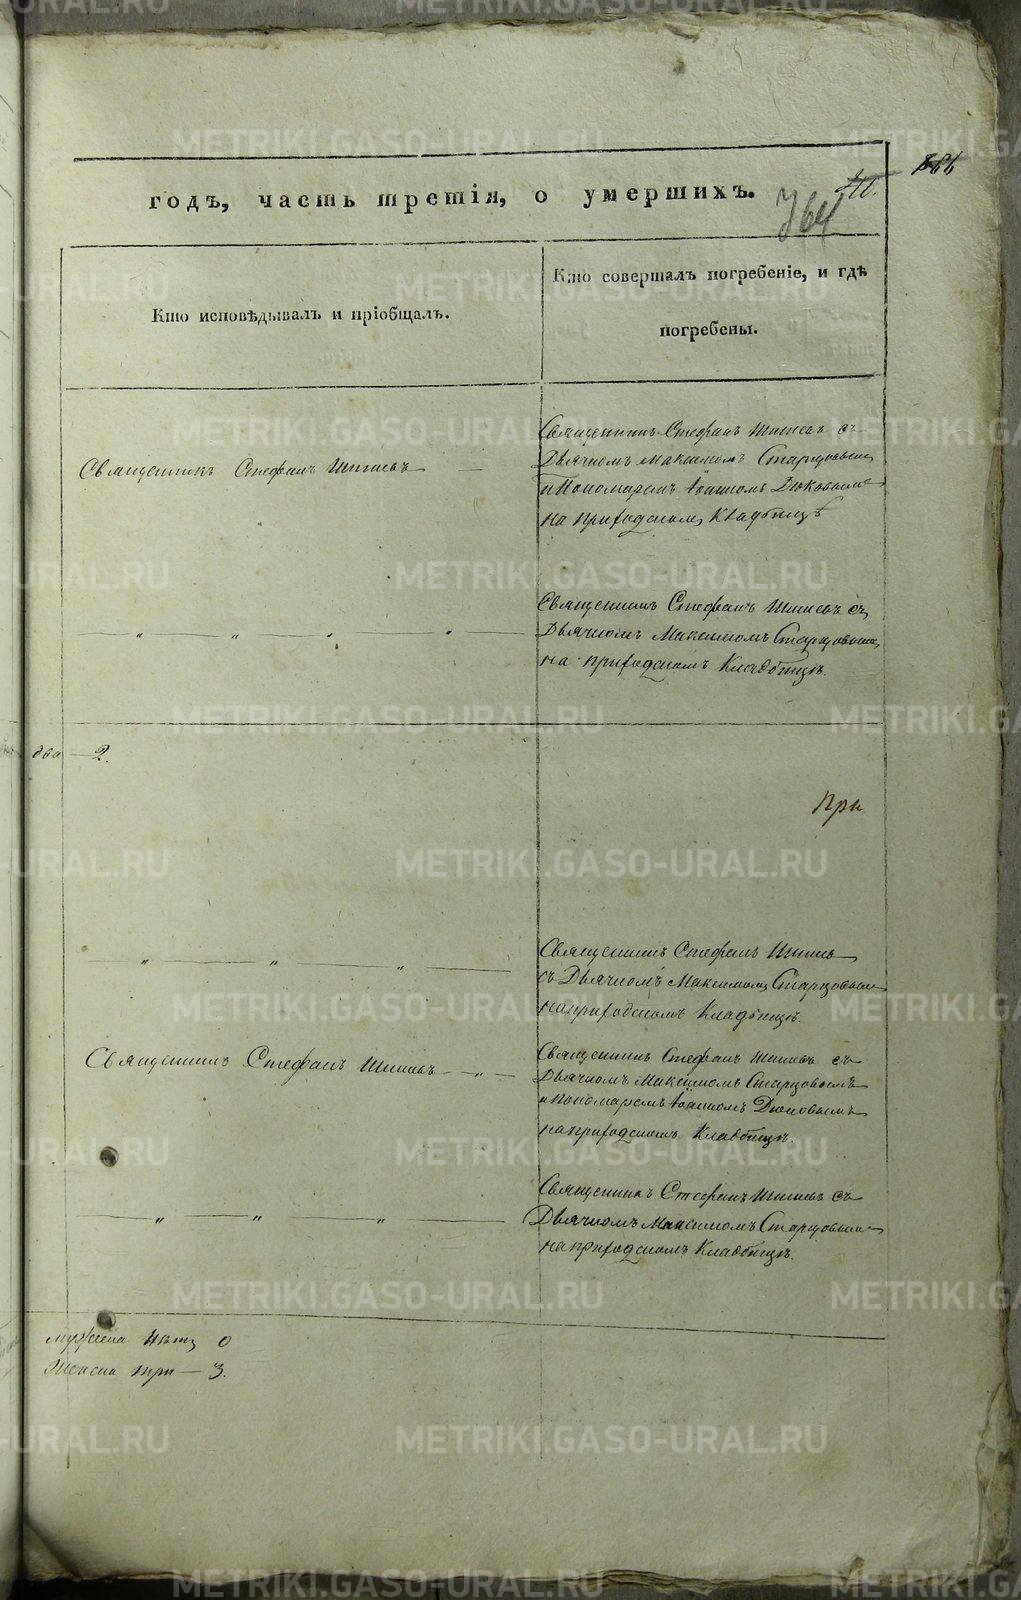 годъ, часть третія, о умершихъ.
764
Кто исповѣдывалъ и пріобщалъ.
Кто совершалъ погребеніе, и гдѣ
погребены.
Священникъ Стефанъ Шишевъ
Священникъ Стефанъ Шишевъ съ
Дьячкомъ Максимомъ Старцовымъ
и Пономаремъ Іоанномъ Дюковымъ
на приходскомъ Кладбищѣ
Священникъ Стефанъ Шишевъ съ
Дьячкомъ Максимомъ Старцовымъ
на приходскомъ Кладбищѣ.
два — 2.
При
Священникъ Стефанъ Шишевъ
съ Дьячкомъ Максимомъ Старцовымъ
на приходскомъ Кладбищѣ.
Священникъ Стефанъ Шишевъ
Священникъ Стефанъ Шишевъ съ
Дьячкомъ Максимомъ Старцовымъ
и Пономаремъ Іоанномъ Дюковымъ
на приходскомъ Кладбищѣ.
Священникъ Стефанъ Шишевъ съ
Дьячкомъ Максимомъ Старцовымъ
на приходскомъ Кладбищѣ.
мужеска нѣтъ 0
Женска три — 3.
METRIKI.GASO-URAL.RU